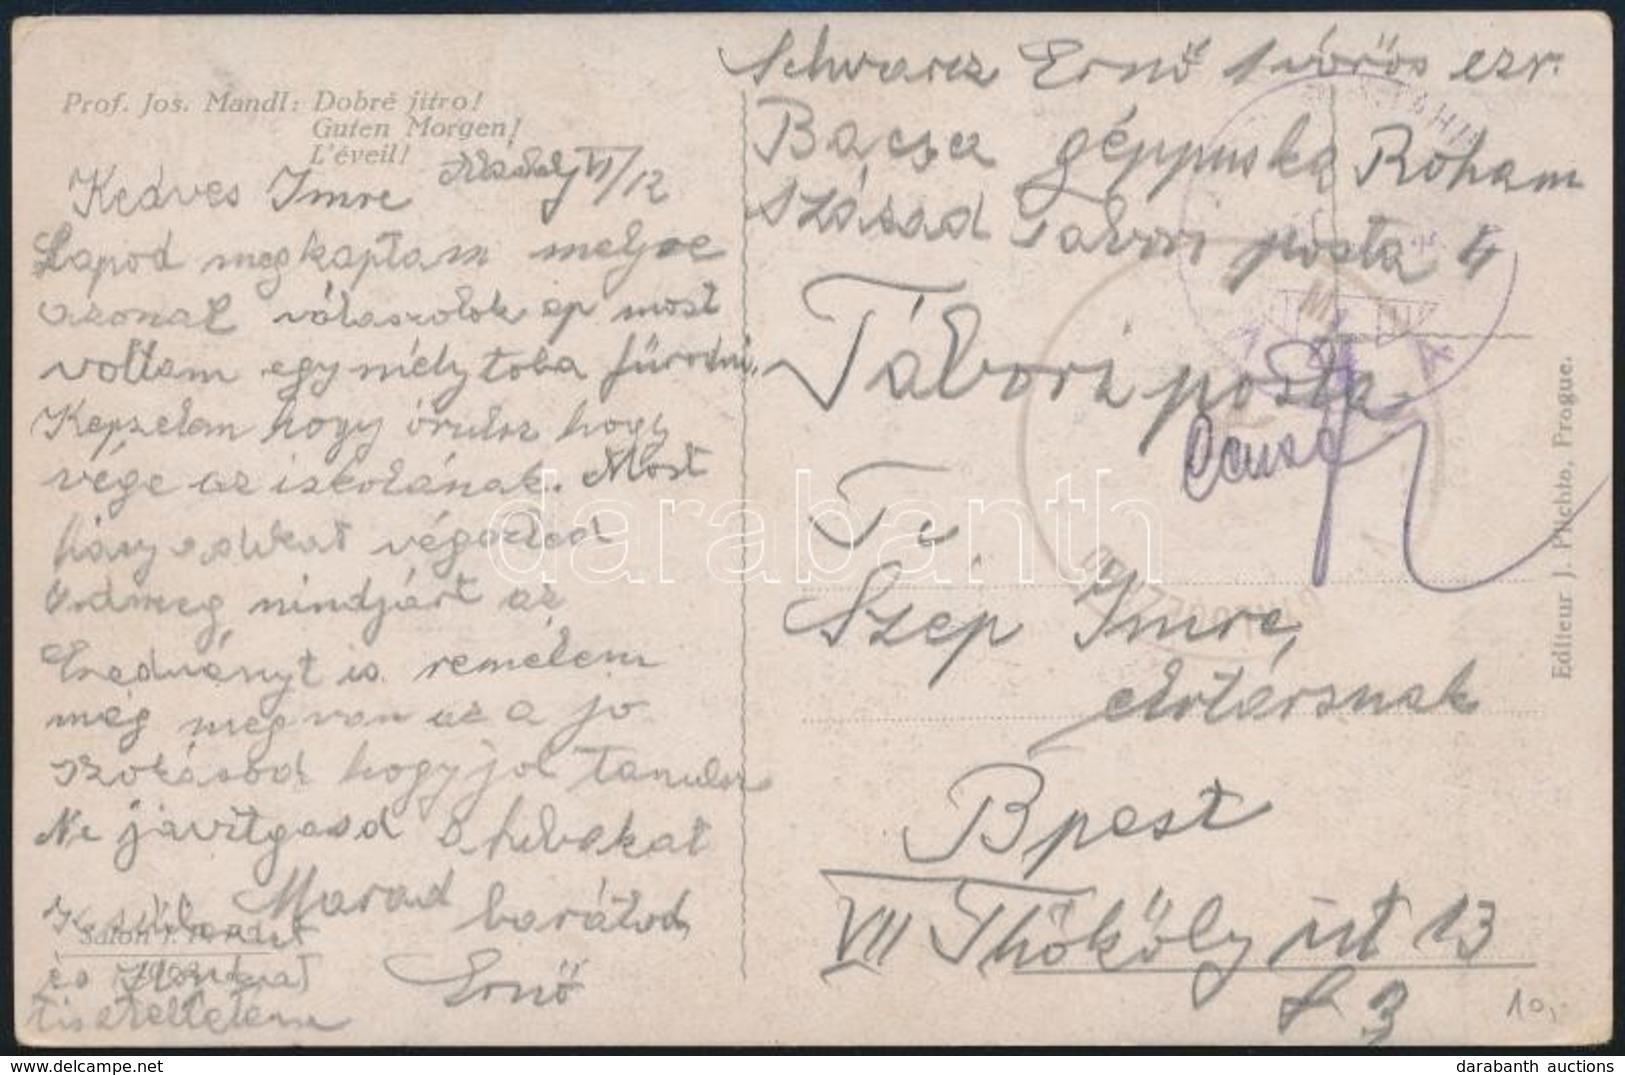 Prof. Jos. Mandl: Dobré jitro!
Guten Morgen!
L'éveil!
VI/12
Kedves Imre
Lapod megkaptam melyre
azonal válaszolok ep most
voltam egy mély toba fürödni.
Kepzelem hogy örülsz hogy
vége az iskolának. Most
végezted
mindjárt az
Eredményt is remélem
még meg van az a jo
szokásod hogy jol tanulsz
Ne javitgasd a hibakat
Marad barátod
Ernő
és
tisztellelem
Schwarcz Ernő 1 vörös ezr.
Bacsa géppuska Roham
század Tabori posta 4
Tábori posta
Te
Szép Imre,
elvtársnak
Bpest
VII Thököly út 13
f 3
10,-
Editeur J. Plichto, Progue.
darabanth
darabanth auctions